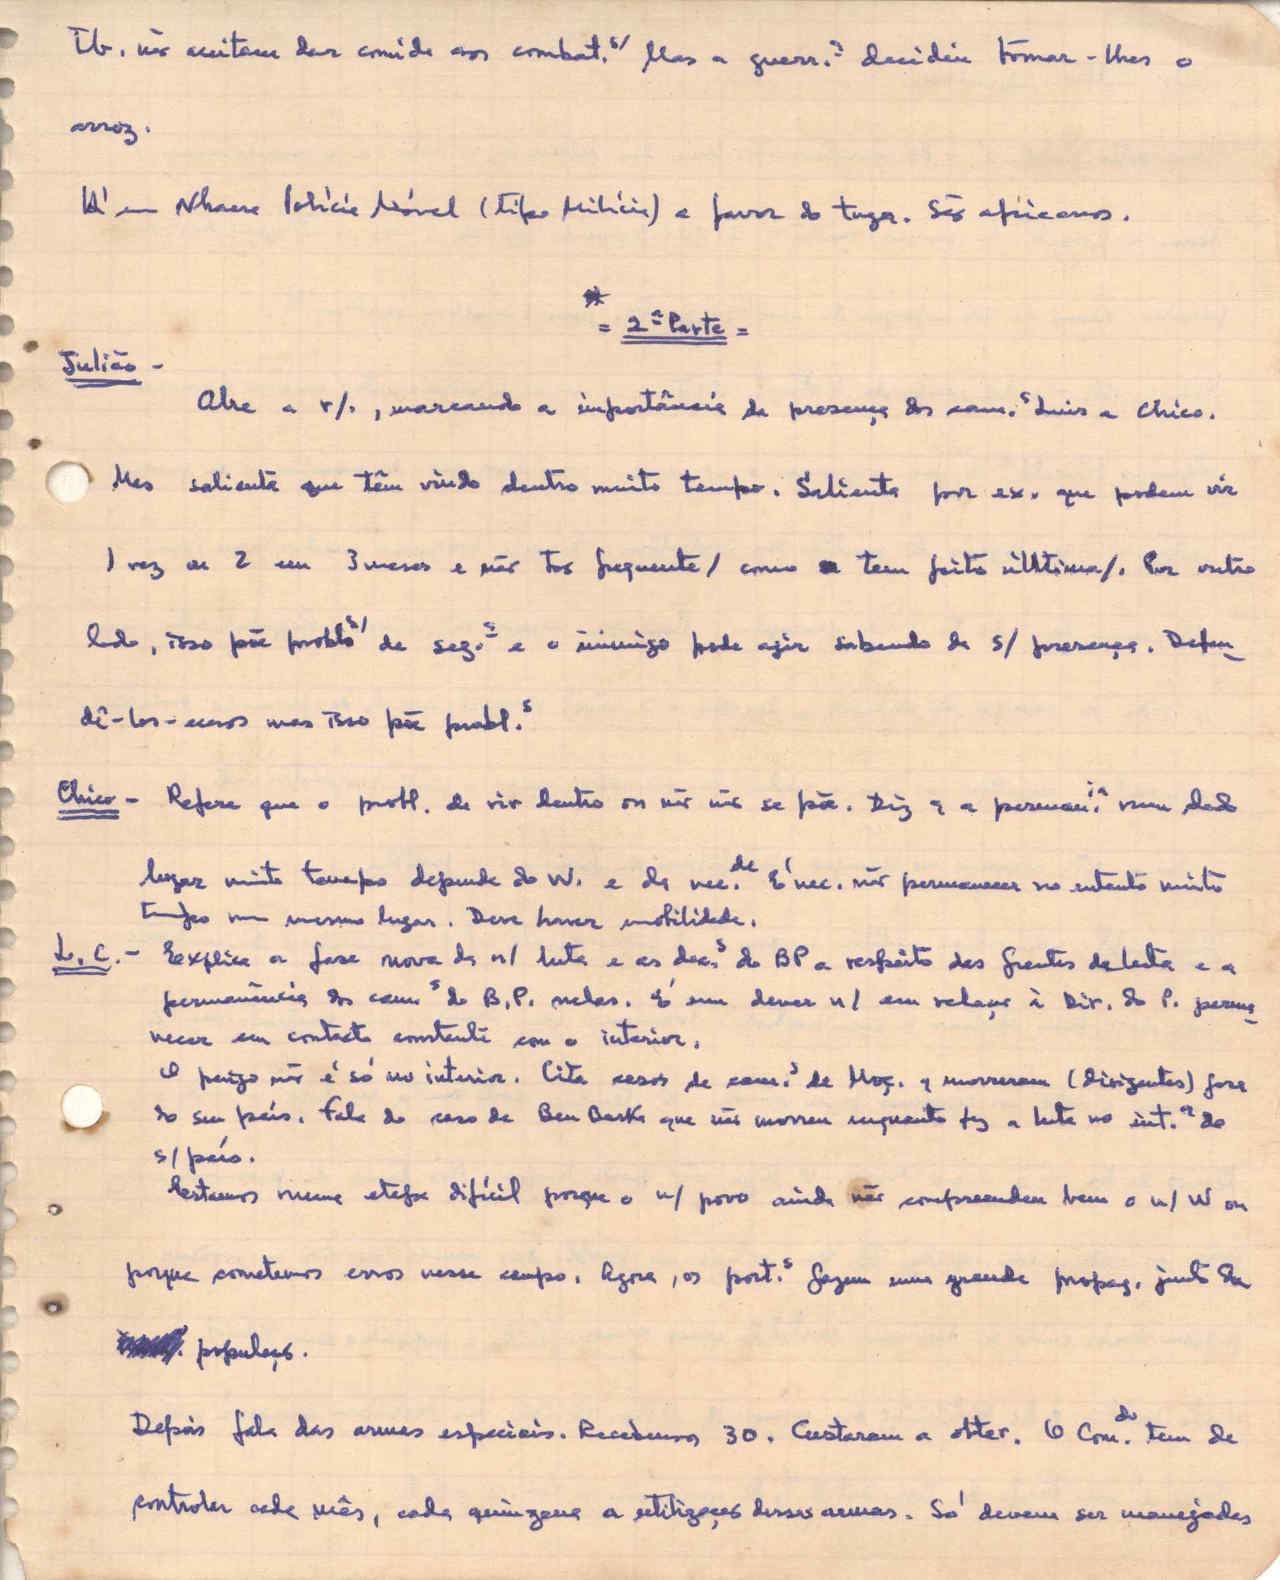 Tb. não aceitam dar comida aos combat.s/ Mas a guerr.a decidiu tomar-lhes o
arroz.
Há em Nhacra Polícia Móvel (tipo Milícia) a favor do tuga. São africanos.
= 2ª Parte =
Julião -
Abre a r/., marcando a importância da presença dos cam.s Luis e Chico.
Mas salienta que têm vindo dentro muito tempo. Salienta por ex. que podem vir
1 vez ou 2 em 3 meses e não tão frequente/ como tem feito ultima/. Por outro
lado, isso põe probls/ de seg.ª e o inimigo pode agir sabendo da s/ presença. Defen-
dê-los-emos mas isso põe probl.s
Chico - Refere que o probl. de vir dentro ou não não se põe. Diz q a perman.ia num dado
lugar muito tempo depende do W. e da nec.de É nec. não permanecer no entanto muito
tempo no mesmo lugar. Deve haver mobilidade.
L. C. - Explica a fase nova da n/ luta e as dec.s do BP a respeito das frentes de luta e a
permanência dos cam.s do B.P. nelas. É um dever n/ em relação à Dir. do P. perma-
necer em contacto constante com o interior.
O perigo não é só no interior. Cita casos de cam.s de Moç. q morreram (dirigentes) fora
do seu país. Fala do caso de Ben Barka que não morreu enquanto fez a luta no int.or do
s/ país.
Estamos numa etapa difícil porque o n/ povo ainda não compreendeu bem o n/ W ou
porque cometemos erros nesse campo. Agora, os port.s fazem uma grande propag. junto da
população.
Depois fala das armas especiais. Recebemos 30. Custaram a obter. O Com.do tem de
controlar cada mês, cada quinzena a utilização dessas armas. Só devem ser manejadas